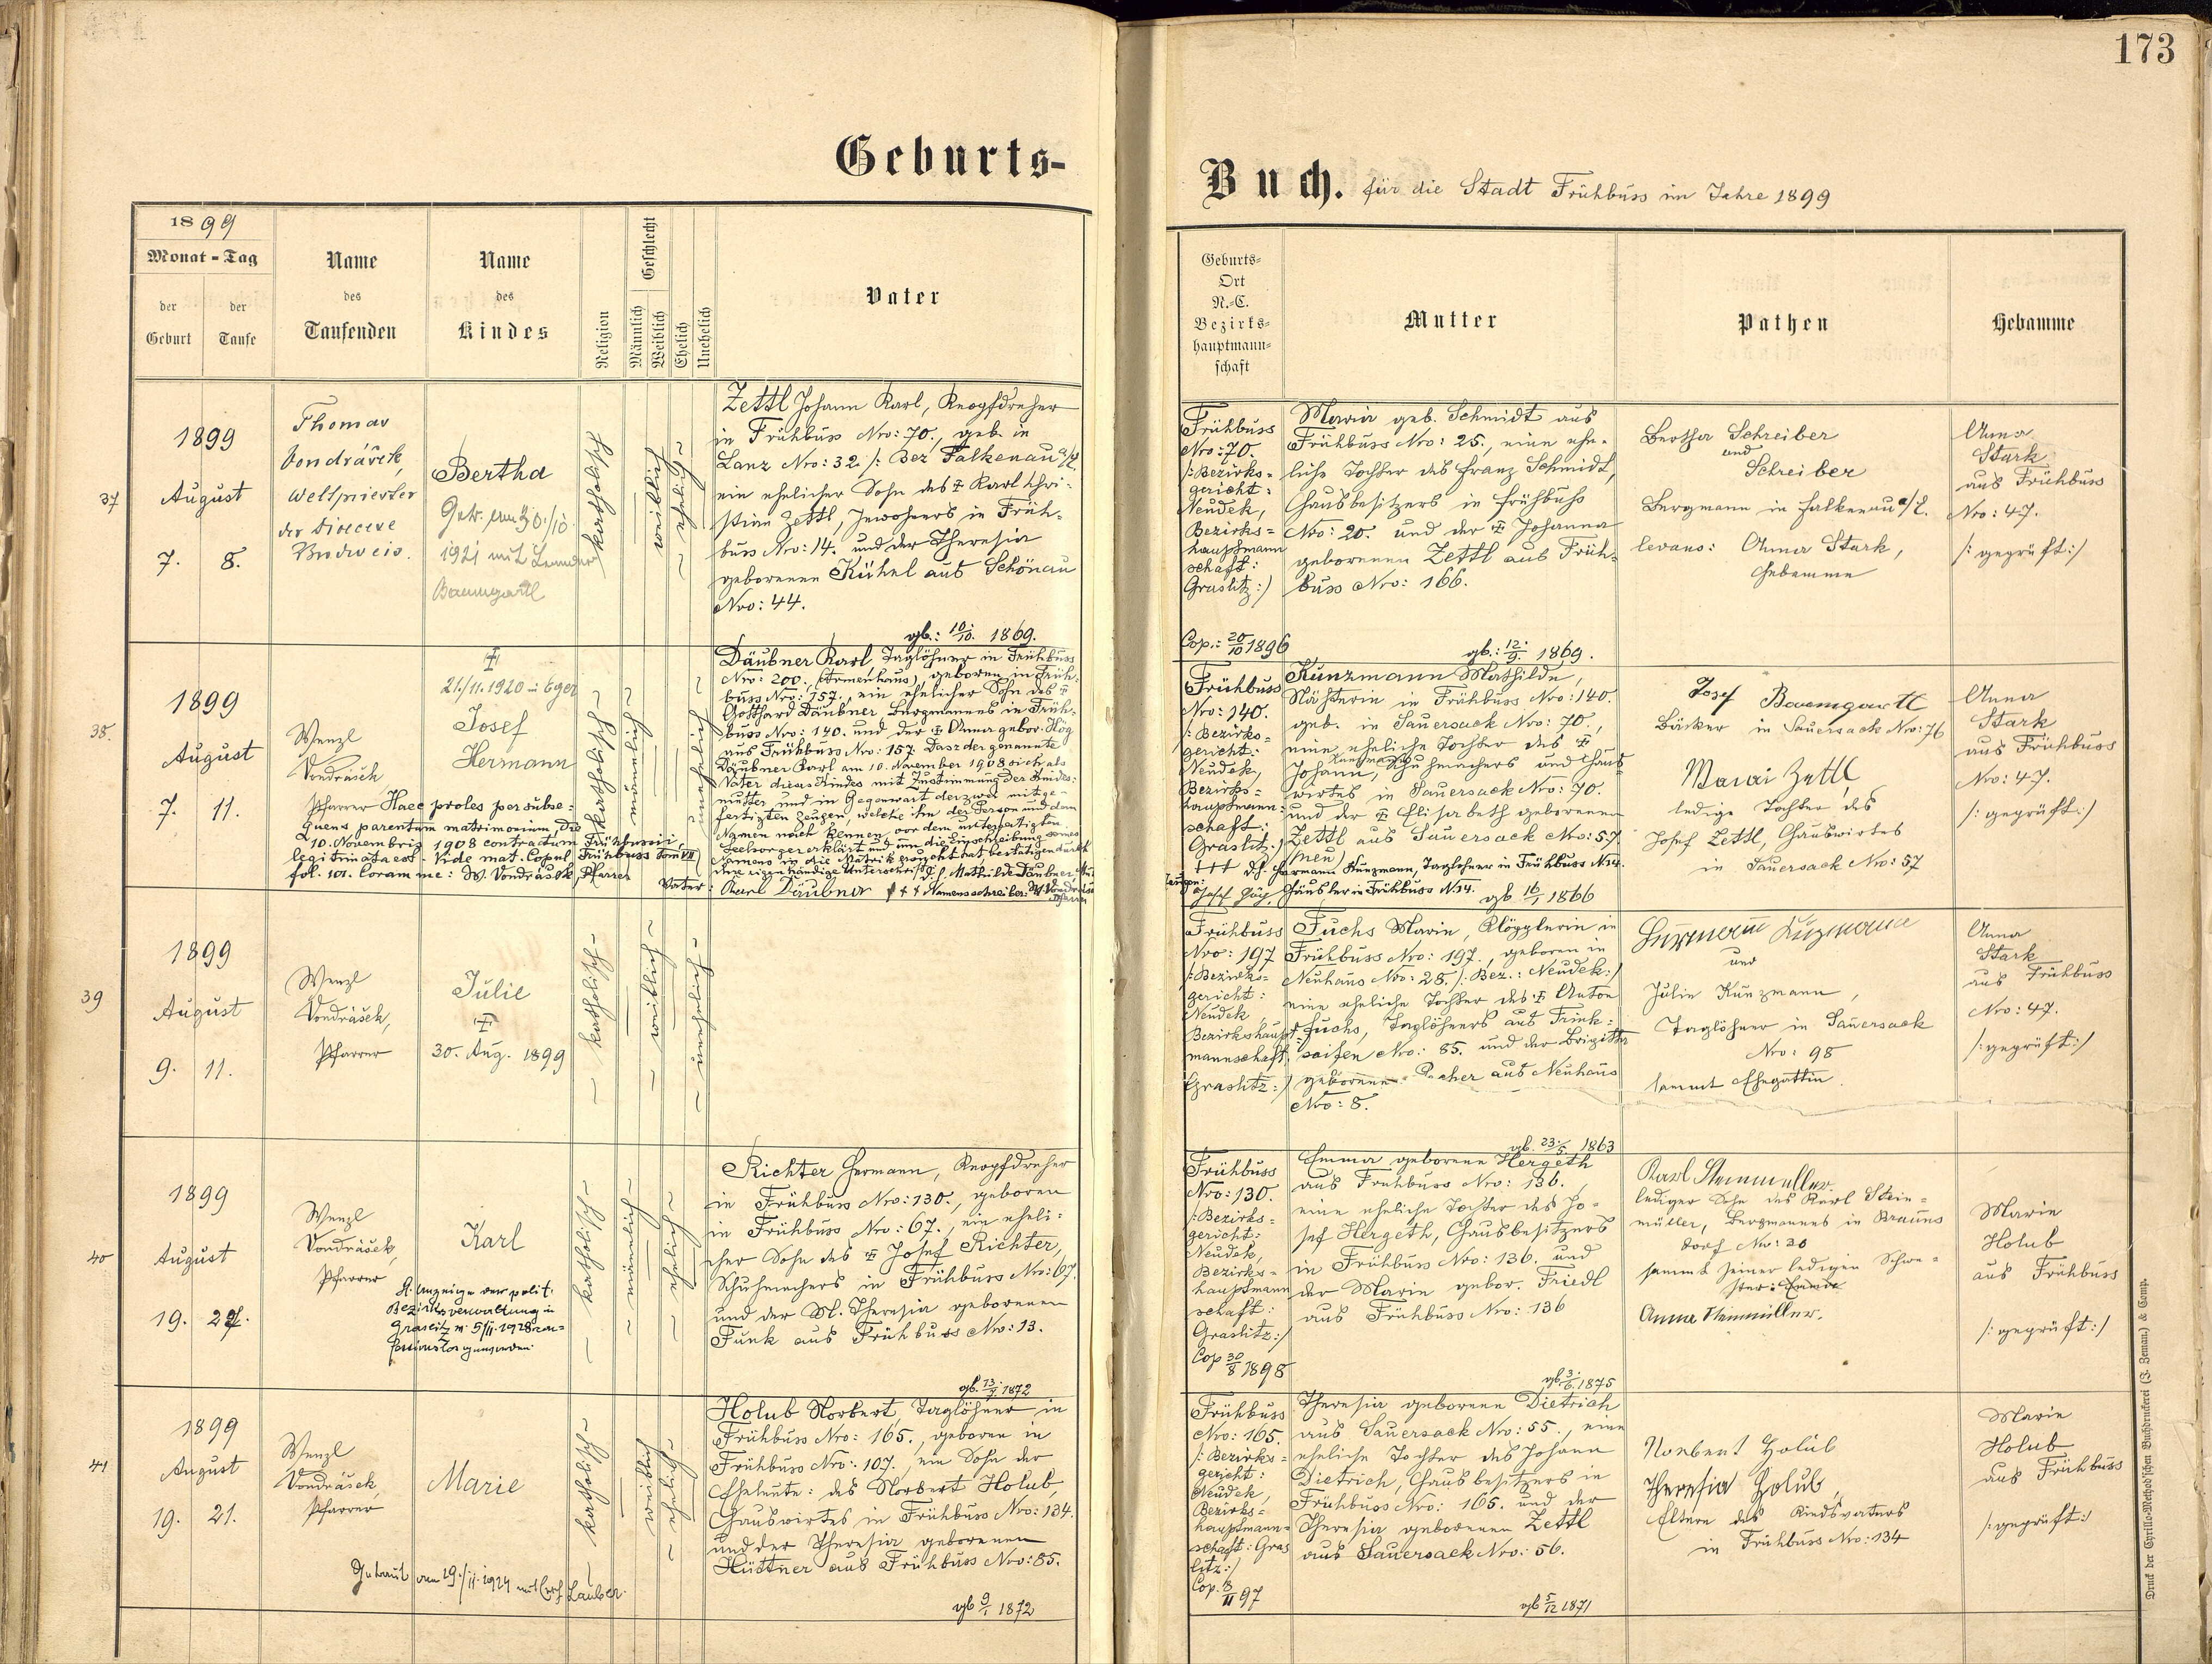 173
Geburts-
Buch. für die Stadt Frühbuss im Jahre 1899
1899
Monat-Tag
der Geburt
der Taufe
Name des Taufenden
Name des Kindes
Religion
Geschlecht
Männlich
Weiblich
Ehelich
Unehelich
Vater
Geburts-
Ort
N.-C.
Bezirks-
hauptmann-
schaft
Mutter
Pathen
Hebamme
37
1899
August
7. 8.
Thomas
Vondrášek,
Weltpriester
der Diöcese
Budweis.
Bertha
Getr. am 30./10.
1921 mit
Baumgartl
katholisch
weiblich
~ ehelich ~
Zettl Johann Karl, Knopfdreher
in Frühbuss Nro: 70., geb. in
Lanz Nro: 32. /: Bez Falkenau a/E.
ein ehelicher Sohn des ☩ Karl Chri-
stian Zettl, Inwohners in Früh-
buss Nro: 14. und der Theresia
geborenen Kühnl aus Schönau
Nro: 44.
gb.: 10./10. 1869.
Frühbuss
Nro: 70.
/: Bezirks=
gericht:
Neudek,
Bezirks=
hauptmann
schaft:
Graslitz :/
Cop.: 20/10 1896
Maria geb. Schmidt aus
Frühbuss Nro: 25., eine ehe-
liche Tochter des Franz Schmidt,
Hausbesitzers in Frühbuss
Nro: 20. und der ☩ Johanna
geborenen Zettl aus Früh-
buss Nro: 166.
gb.: 12./9. 1869.
Bertha Schreiber
und
Schreiber
Bergmann in Falkenau a/E.
levans: Anna Stark,
Hebamme
Anna
Stark
aus Frühbuss
Nro: 47.
/: geprüft :/
38.
1899
August
7. 11.
Wenzl
Vondrášek
Pfarrer
☩
21./11. 1920 in Eger
Josef
Hermann
Haec proles per subse=
quens parentum matrimonium, die
10. Novembris 1908 contractum Frühbussii,
legitimata est. Vide mat. Copul. Frühbuss Tom VII
fol. 101. Coram me: W. Vondrášek, Pfarrer
katholisch
männlich
unehelich
Däubner Karl Taglöhner in Frühbuss
Nro: 200. (Armenhaus), geboren in Früh-
buss Nro: 157., ein ehelicher Sohn des ☩
Gotthard Däubner Bergmannes in Früh-
buss Nro: 140. und der ☩ Anna gebor. Hög
aus Frühbuss Nro: 157. Dass der genannte
Däubner Karl am 10. November 1908 sich als
Vater dieses Kindes mit Zustimmung der Kindes-
mutter und in Gegenwart der zwei mitge-
fertigten Zeugen, welche ihn der Person und dem
Namen nach kennen, vor dem unterfertigten
Seelsorger erklärt und um die Einschreibung seines
Namens in die Matrik ersucht hat, bestätigen durch
ihre eigenhändige Unterschrift
Vater: Karl Däubner ††† Namensschreiber: W. Vondrášek
Pfarrer
Frühbuss
Nro: 140.
/: Bezirks=
gericht:
Neudek,
Bezirks=
hauptmann=
schaft:
Graslitz :/
Kunzmann Mathilde,
Nähterin in Frühbuss Nro: 140.
geb. in Sauersack Nro: 70.,
eine eheliche Tochter des ☩
Johann Kunzmann, Schuhmachers und Haus-
wirtes in Sauersack Nro: 70.
und der ☩ Elisabeth geborenen
Zettl aus Sauersack Nro: 57.
(neu)
††† d.h. Hermann Kunzmann, Taglöhner in Frühbuss N.14.
Zeugen:
Häusler in Frühbuss N.14.
gb 16/1 1866
Josef Baumgartl
Bäcker in Sauersack Nro: 76
Marai Zettl,
ledige Tochter des
Josef Zettl, Hauswirtes
in Sauersack Nro: 57
Anna
Stark
aus Frühbuss
Nro: 47.
/: geprüft :/
39
1899
August
9. 11.
Wenzl
Vondrášek,
Pfarrer
Julie
☩
30. Aug. 1899
- katholisch -
- weiblich -
~ unehelich ~
Frühbuss
Nro: 197
/: Bezirks=
gericht:
Neudek,
Bezirkshaupt-
mannschaft:
Graslitz :/
Fuchs Marie, Klöpplerin in
Frühbuss Nro: 197., geboren in
Neuhaus Nro: 28. /: Bez.: Neudek :/
eine eheliche Tochter des ☩ Anton
Fuchs, Taglöhners aus Trink-
seifen Nro: 85. und der Brigitta
geborenen Pecher aus Neuhaus
Nro: 8.
gb. 23./5. 1863
Hermann Kunzmann
und
Julie Kunzmann,
Taglöhner in Sauersack
Nro: 98
sammt Ehegattin.
Anna
Stark
aus Frühbuss
Nro: 47.
/: geprüft :/
40
1899
August
19. 21.
Wenzl
Vondrášek,
Pfarrer
Karl
Lt. Anzeige der polit.
Bezirksverwaltung in
Graslitz v. 5/II. 1928 kon-
fessionslos geworden.
- katholisch -
- männlich -
- ehelich -
Richter Hermann, Knopfdreher
in Frühbuss Nro: 130., geboren
in Frühbuss Nro: 67., ein eheli-
cher Sohn des ☩ Josef Richter,
Schuhmachers in Frühbuss Nro: 67.
und der M. Theresia geborenen
Funk aus Frühbuss Nro: 13.
gb. 13./7. 1872
Frühbuss
Nro: 130.
/: Bezirks=
gericht:
Neudek,
Bezirks=
hauptmann
schaft:
Graslitz :/
Cop 30/8 1898
Emma geborene Hergeth
aus Frühbuss Nro: 136.,
eine eheliche Tochter des Jo-
sef Hergeth, Hausbesitzers
in Frühbuss Nro: 136. und
der Marie gebor. Friedl
aus Frühbuss Nro: 136
gb. 3./6. 1875
Karl Steinmüller
lediger Sohn des Karl Stein-
müller, Bergmannes in Brauns
dorf Nro: 20
sammt seiner ledigen Schwe-
ster:
Anna Steinmüller.
Marie
Holub
aus Frühbuss
/: geprüft :/
41
1899
August
19. 21.
Wenzl
Vondrášek,
Pfarrer
Marie
Getraut am 19./II. 1924 mit
- katholisch -
weiblich
- ehelich -
Holub Norbert, Taglöhner in
Frühbuss Nro: 165., geboren in
Frühbuss Nro: 107., ein Sohn der
Eheleute: des Norbert Holub,
Hauswirtes in Frühbuss Nro: 134.
und der Theresia geborenen
Hüttner aus Frühbuss Nro: 85.
gb 9/1 1872
Frühbuss
Nro: 165.
/: Bezirks=
gericht:
Neudek,
Bezirks=
hauptmann=
schaft: Gras
litz :/
Cop. 3/II 97
Theresia geborene Dietrich
aus Sauersack Nro: 55., eine
eheliche Tochter des Johann
Dietrich, Hausbesitzers in
Frühbuss Nro: 165. und der
Theresia geborenen Zettl
aus Sauersack Nro: 56.
gb 5/12 1871
Norbert Holub
Theresia Holub,
Eltern des Kindsvaters
in Frühbuss Nro: 134
Marie
Holub
aus Frühbuss
/: geprüft :/
Druck der Cyrillo-Method'schen Buchdruckerei (J. Zeman) & Comp.